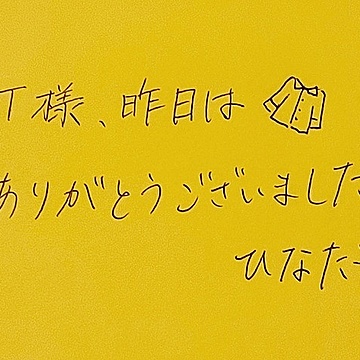 T様、昨日は
ありがとうございました
ひなた